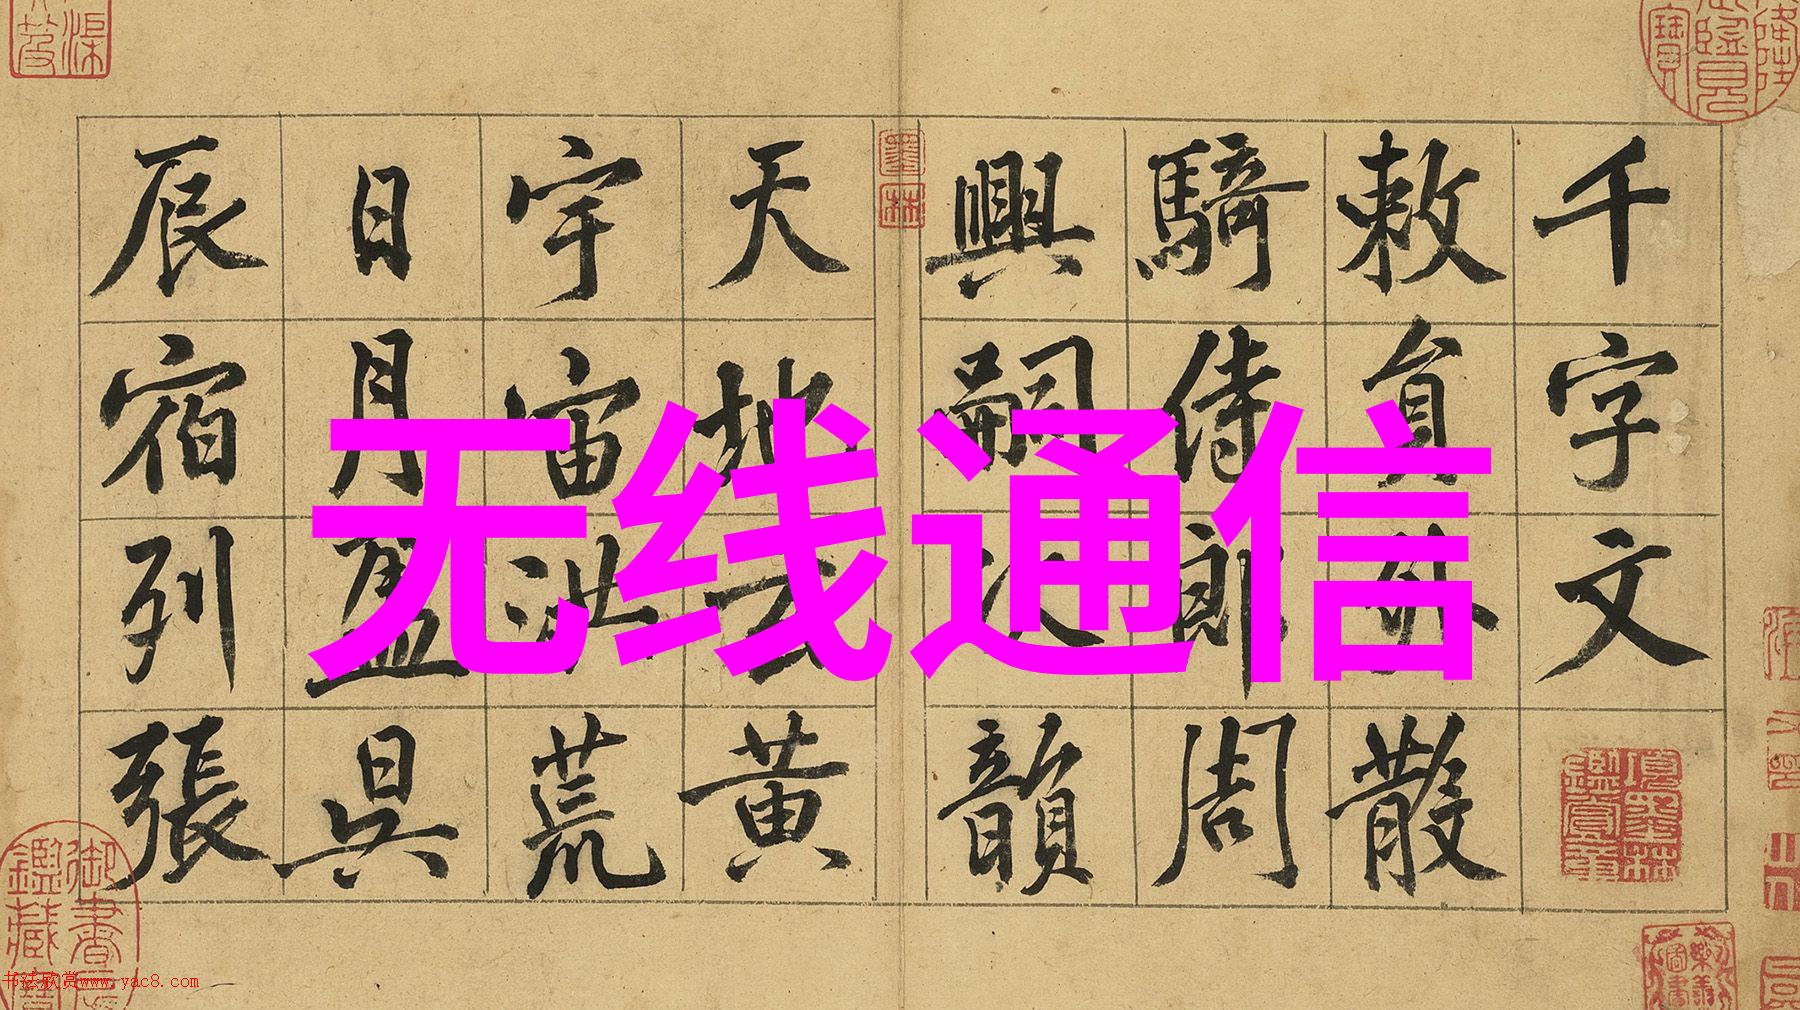 千字文
敕員外散
騎侍郎周
興嗣次韻
天地玄黃
宇宙洪荒
日月盈昃
辰宿列張
无线通信
墨林
項墨林鑑賞章
书法欣赏www.yac8.com